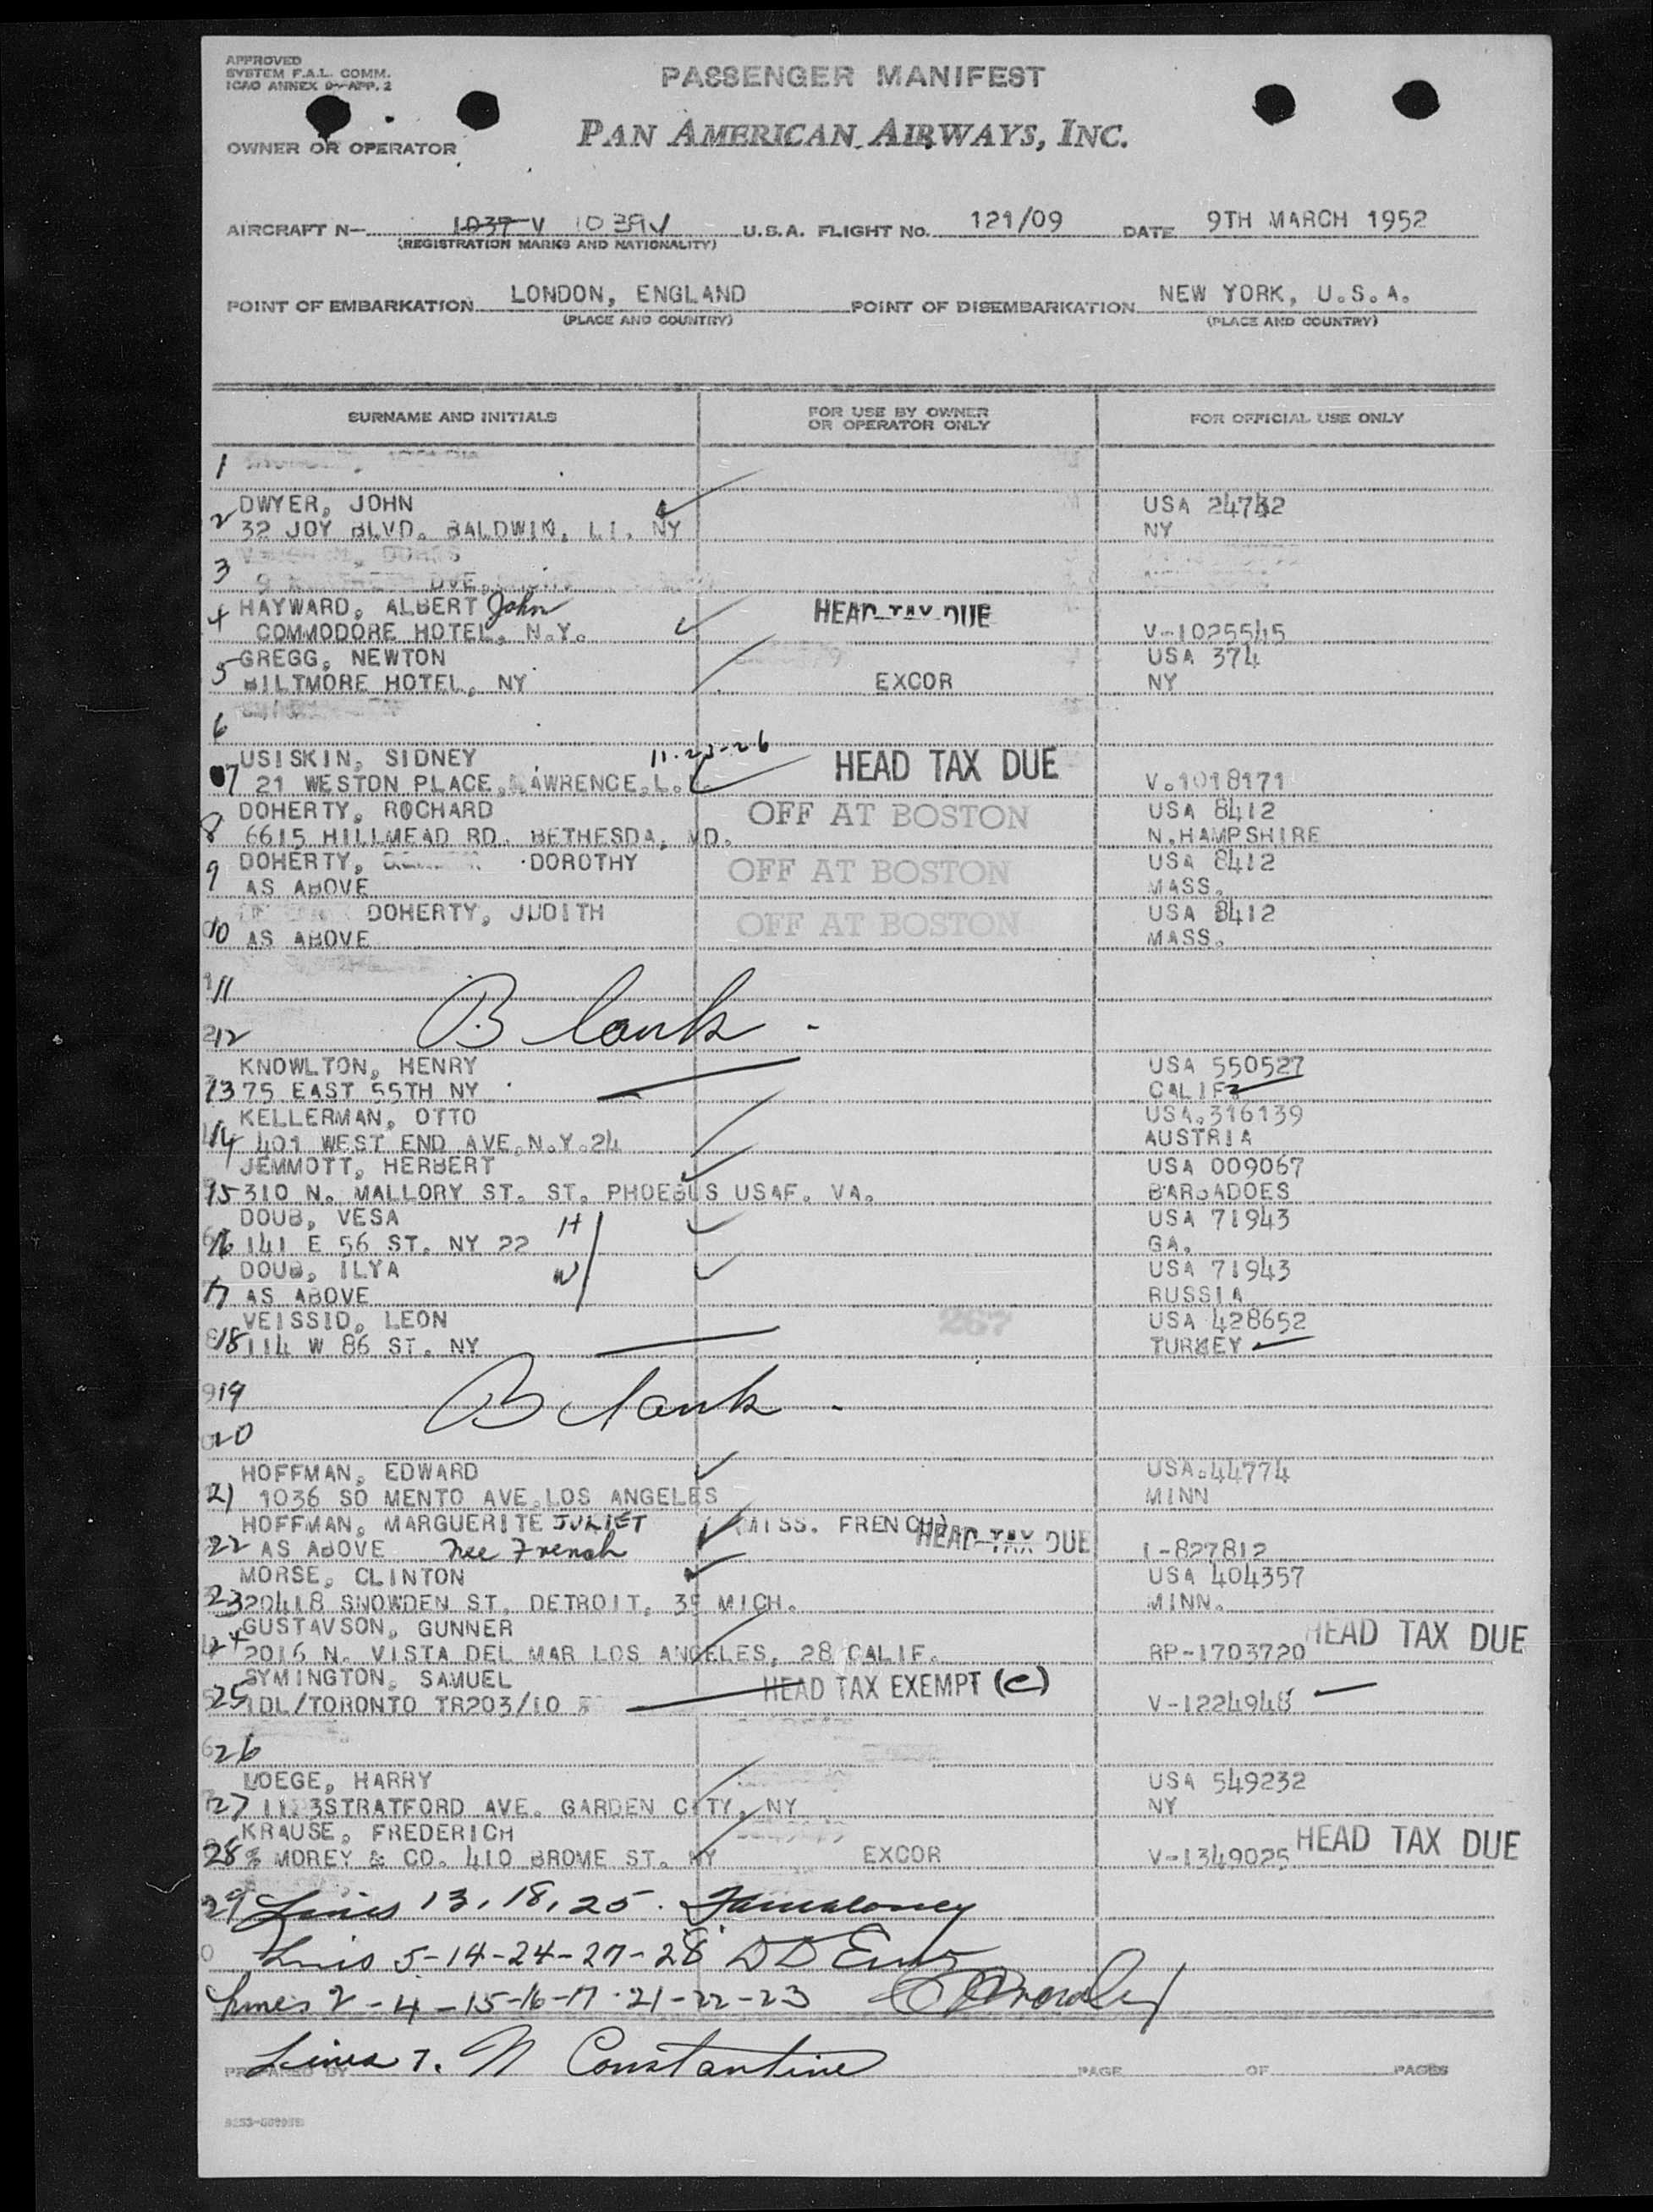 APPROVED
SYSTEM F.A.L. COMM.
ICAO ANNEX 9-APP. 2
PASSENGER MANIFEST
OWNER OR OPERATOR
PAN AMERICAN AIRWAYS, INC.
AIRCRAFT N- 1037-V 1039V U.S.A. FLIGHT NO. 121/09 DATE 9TH MARCH 1952
(REGISTRATION MARKS AND NATIONALITY)
POINT OF EMBARKATION LONDON, ENGLAND POINT OF DISEMBARKATION NEW YORK, U.S.A.
(PLACE AND COUNTRY) (PLACE AND COUNTRY)
SURNAME AND INITIALS FOR USE BY OWNER OR OPERATOR ONLY FOR OFFICIAL USE ONLY
1
DWYER, JOHN USA
2 32 JOY BLVD. BALDWIN, LI, NY NY
3
HAYWARD, ALBERT John HEAD TAX DUE
4 COMMODORE HOTEL, N.Y. V-1025545
GREGG, NEWTON USA 374
5 BILTMORE HOTEL, NY EXCOR NY
6
USISKIN, SIDNEY HEAD TAX DUE
7 21 WESTON PLACE, LAWRENCE, L.I. V.1018171
DOHERTY, ROCHARD OFF AT BOSTON USA 8412
8 6615 HILLMEAD RD. BETHESDA, MD. N.HAMPSHIRE
DOHERTY, DOROTHY OFF AT BOSTON USA 8412
9 AS ABOVE MASS.
DOHERTY, JUDITH OFF AT BOSTON USA 8412
10 AS ABOVE MASS.
11
12 Blank.
KNOWLTON, HENRY USA 550527
13 75 EAST 55TH NY CALIF
KELLERMAN, OTTO USA.316139
14 401 WEST END AVE,N.Y.24 AUSTRIA
JEMMOTT, HERBERT USA 009067
15 310 N. MALLORY ST. ST. PHOEBUS USAF. VA. BARBADOES
DOUB, VESA H USA 71943
16 141 E 56 ST. NY 22 GA.
DOUB, ILYA W USA 71943
17 AS ABOVE RUSSIA
VEISSID, LEON 267 USA 428652
18 114 W 86 ST. NY TURKEY
19 Blank.
20
HOFFMAN, EDWARD USA.44774
21 1036 SO MENTO AVE,LOS ANGELES MINN
HOFFMAN, MARGUERITE JULIET (MISS. FRENCH) HEAD TAX DUE
22 AS ABOVE Nee French I-827812
MORSE, CLINTON USA 404357
23 20418 SNOWDEN ST, DETROIT, 35 MICH. MINN.
GUSTAVSON, GUNNER HEAD TAX DUE
24 2016 N. VISTA DEL MAR LOS ANGELES, 28 CALIF. RP-1703720
SYMINGTON, SAMUEL HEAD TAX EXEMPT (C)
25 IDL/TORONTO TR203/10 V-1224948
26
HARRY USA 549232
27 STRATFORD AVE. GARDEN CITY, NY NY
KRAUSE, FREDERICH HEAD TAX DUE
28 % MOREY & CO. 410 BROME ST. NY EXCOR V-1349025
29 Lines 13, 18, 25.
Lines 5-14-24-27-28
Lines 2-4-15-16-17-21-22-23
Lines 7. N Constantine
PREPARED BY PAGE OF PAGES